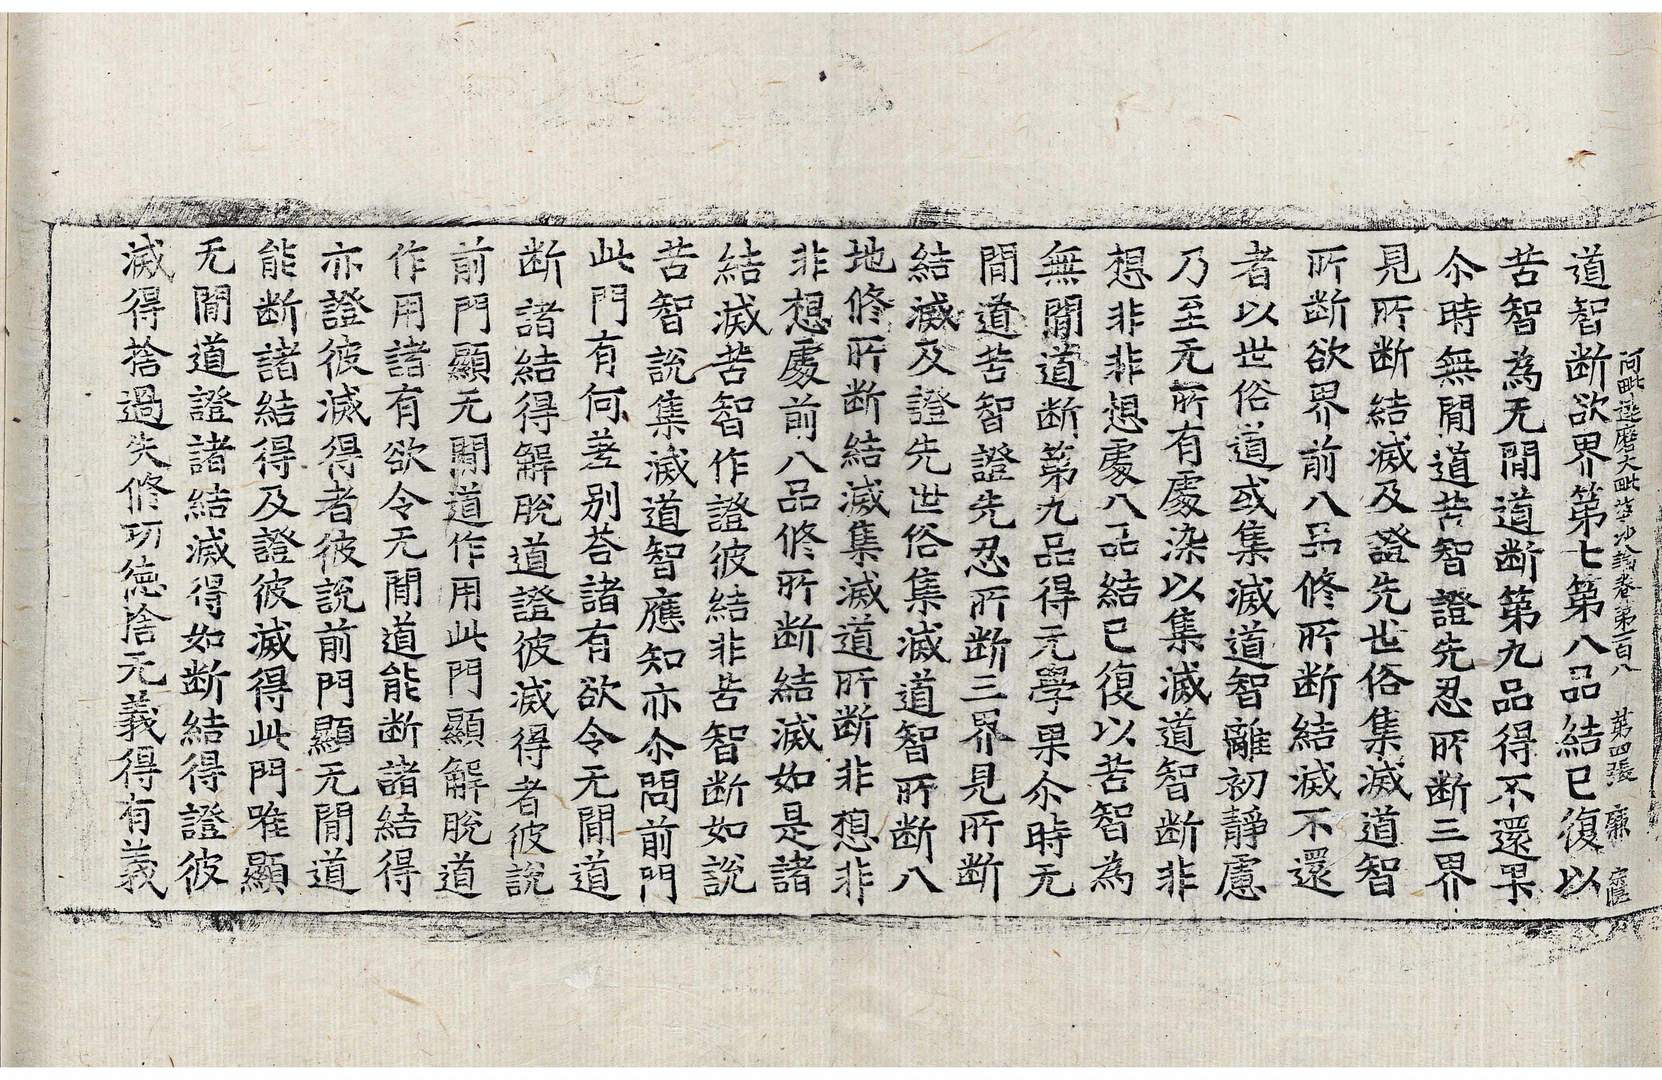 阿毗達磨大毗婆沙論卷第一百八　第四張　廉
道智断欲界第七第八品結已復以
苦智為无間道断第九品得不還果
尒時無間道苦智證先忍所断三界
見所断結滅及證先世俗集滅道智
所断欲界前八品修所断結滅不還
者以世俗道或集滅道智離初靜慮
乃至无所有處染以集滅道智断非
想非非想處八品結已復以苦智為
無間道断第九品得无學果尒時无
間道苦智證先忍所断三界見所断
結滅及證先世俗集滅道智所断八
地修所断結滅集滅道所断非想非
非想處前八品修所断結滅如是諸
結滅苦智作證彼結非苦智断如說
苦智說集滅道智應知亦尒問前門
此門有何差别荅諸有欲令无間道
断諸結得解脫道證彼滅得者彼說
前門顯无間道作用此門顯解脫道
作用諸有欲令无間道能断諸結得
亦證彼滅得者彼說前門顯无間道
能断諸結得及證彼滅得此門唯顯
无間道證諸結滅得如断結得證彼
滅得捨過失修功德捨无義得有義